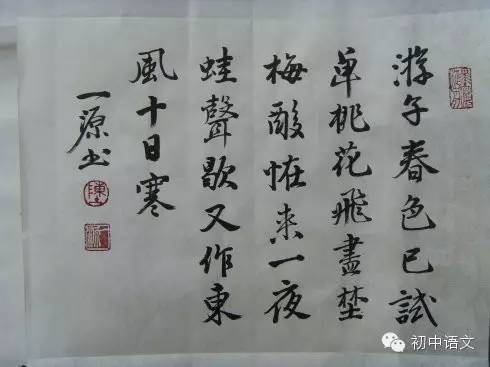 游子春色已試
单桃花飛盡埜
梅酸恠来一夜
蛙聲歇又作東
風十日寒
一源书
初中语文